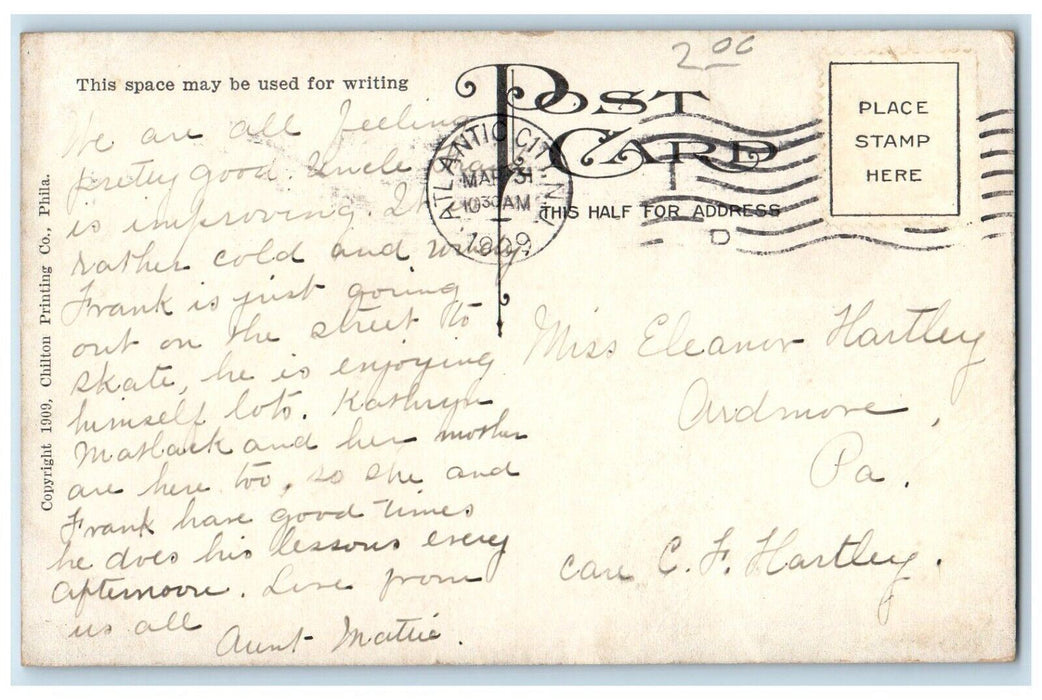 2 00
This space may be used for writing
POST
CARD
THIS HALF FOR ADDRESS
PLACE
STAMP
HERE
ATLANTIC CITY, N.J.
MAR 31
10 30 AM
1909
D
Copyright 1909, Chilton Printing Co., Phila.
We are all feeling
pretty good. Uncle
is improving. It
rather cold and windy.
Frank is just going
out on the street to
skate, he is enjoying
himself lots. Kathryn
Matlack and her mother
are here too, so she and
Frank have good times
he does his lessons every
afternoon. Love from
us all
Aunt Mattie.
Miss Eleanor Hartley
Ardmore,
Pa.
care C. F. Hartley.